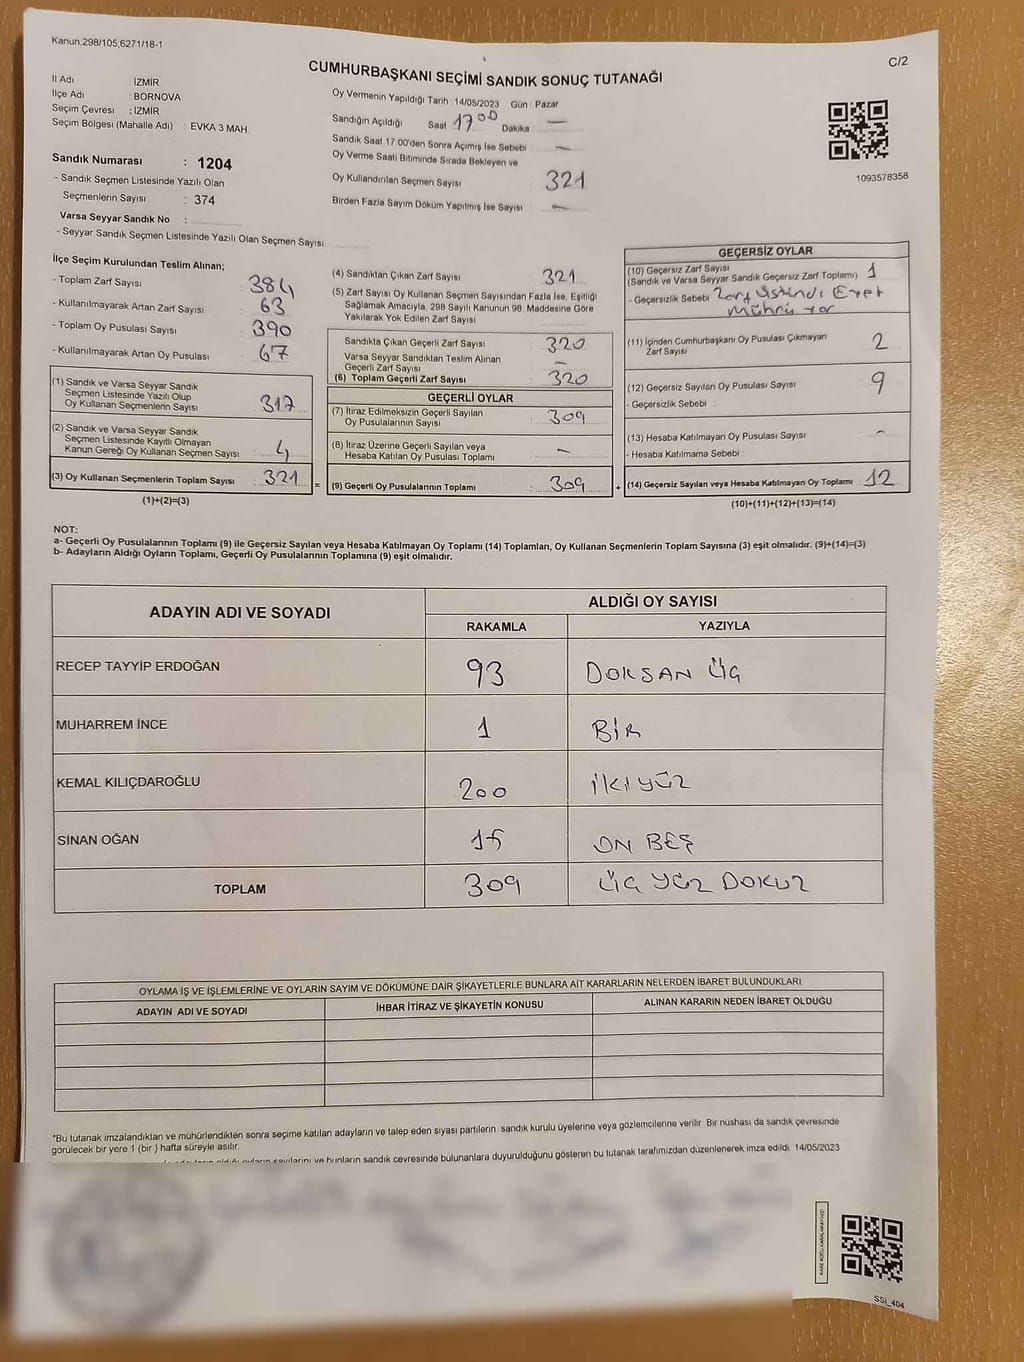 Kanun.298/105,6271/18-1
C/2
CUMHURBAŞKANI SEÇİMİ SANDIK SONUÇ TUTANAĞI
İl Adı İZMİR
İlçe Adı : BORNOVA
Seçim Çevresi : İZMİR
Seçim Bölgesi (Mahalle Adı) : EVKA 3 MAH.
Sandık Numarası : 1204
- Sandık Seçmen Listesinde Yazılı Olan
Seçmenlerin Sayısı : 374
Varsa Seyyar Sandık No :
- Seyyar Sandık Seçmen Listesinde Yazılı Olan Seçmen Sayısı
Oy Vermenin Yapıldığı Tarih : 14/05/2023 Gün : Pazar
Sandığın Açıldığı Saat 17 00 Dakika : —
Sandık Saat 17.00'den Sonra Açılmış İse Sebebi : —
Oy Verme Saati Bitiminde Sırada Bekleyen ve
Oy Kullandırılan Seçmen Sayısı 321
Birden Fazla Sayım Döküm Yapılmış İse Sayısı : —
1093578358
İlçe Seçim Kurulundan Teslim Alınan;
- Toplam Zarf Sayısı : 384
- Kullanılmayarak Artan Zarf Sayısı : 63
- Toplam Oy Pusulası Sayısı : 390
- Kullanılmayarak Artan Oy Pusulası : 67
(1) Sandık ve Varsa Seyyar Sandık
Seçmen Listesinde Yazılı Olup
Oy Kullanan Seçmenlerin Sayısı : 317
(2) Sandık ve Varsa Seyyar Sandık
Seçmen Listesinde Kayıtlı Olmayan
Kanun Gereği Oy Kullanan Seçmen Sayısı : 4
(3) Oy Kullanan Seçmenlerin Toplam Sayısı : 321
(1)+(2)=(3)
(4) Sandıktan Çıkan Zarf Sayısı : 321
(5) Zarf Sayısı Oy Kullanan Seçmen Sayısından Fazla İse, Eşitliği
Sağlamak Amacıyla, 298 Sayılı Kanunun 98. Maddesine Göre
Yakılarak Yok Edilen Zarf Sayısı
Sandıkta Çıkan Geçerli Zarf Sayısı : 320
Varsa Seyyar Sandıktan Teslim Alınan
Geçerli Zarf Sayısı : —
(6) Toplam Geçerli Zarf Sayısı : 320
GEÇERLİ OYLAR
(7) İtiraz Edilmeksizin Geçerli Sayılan
Oy Pusulalarının Sayısı : 309
(8) İtiraz Üzerine Geçerli Sayılan veya
Hesaba Katılan Oy Pusulası Toplamı : —
= (9) Geçerli Oy Pusulalarının Toplamı : 309
GEÇERSİZ OYLAR
(10) Geçersiz Zarf Sayısı
(Sandık ve Varsa Seyyar Sandık Geçersiz Zarf Toplamı) : 1
- Geçersizlik Sebebi : Zarf Üstündi Evet
Mührü var
(11) İçinden Cumhurbaşkanı Oy Pusulası Çıkmayan
Zarf Sayısı : 2
(12) Geçersiz Sayılan Oy Pusulası Sayısı : 9
- Geçersizlik Sebebi :
(13) Hesaba Katılmayan Oy Pusulası Sayısı : -
- Hesaba Katılmama Sebebi :
+ (14) Geçersiz Sayılan veya Hesaba Katılmayan Oy Toplamı : 12
(10)+(11)+(12)+(13)=(14)
NOT:
a- Geçerli Oy Pusulalarının Toplamı (9) ile Geçersiz Sayılan veya Hesaba Katılmayan Oy Toplamı (14) Toplamları, Oy Kullanan Seçmenlerin Toplam Sayısına (3) eşit olmalıdır. (9)+(14)=(3)
b- Adayların Aldığı Oyların Toplamı, Geçerli Oy Pusulalarının Toplamına (9) eşit olmalıdır.
ADAYIN ADI VE SOYADI ALDIĞI OY SAYISI
RAKAMLA YAZIYLA
RECEP TAYYİP ERDOĞAN 93 DOKSAN ÜÇ
MUHARREM İNCE 1 BİR
KEMAL KILIÇDAROĞLU 200 İKİ YÜZ
SİNAN OĞAN 15 ON BEŞ
TOPLAM 309 ÜÇ YÜZ DOKUZ
OYLAMA İŞ VE İŞLEMLERİNE VE OYLARIN SAYIM VE DÖKÜMÜNE DAİR ŞİKAYETLERLE BUNLARA AİT KARARLARIN NELERDEN İBARET BULUNDUKLARI
ADAYIN ADI VE SOYADI İHBAR İTİRAZ VE ŞİKAYETİN KONUSU ALINAN KARARIN NEDEN İBARET OLDUĞU
*Bu tutanak imzalandıktan ve mühürlendikten sonra seçime katılan adayların ve talep eden siyasi partilerin sandık kurulu üyelerine veya gözlemcilerine verilir. Bir nüshası da sandık çevresinde
görülecek bir yere 1 (bir ) hafta süreyle asılır.
oyların sayılarını ve bunların sandık çevresinde bulunanlara duyurulduğunu gösteren bu tutanak tarafımızdan düzenlenerek imza edildi. 14/05/2023
SSİ_404